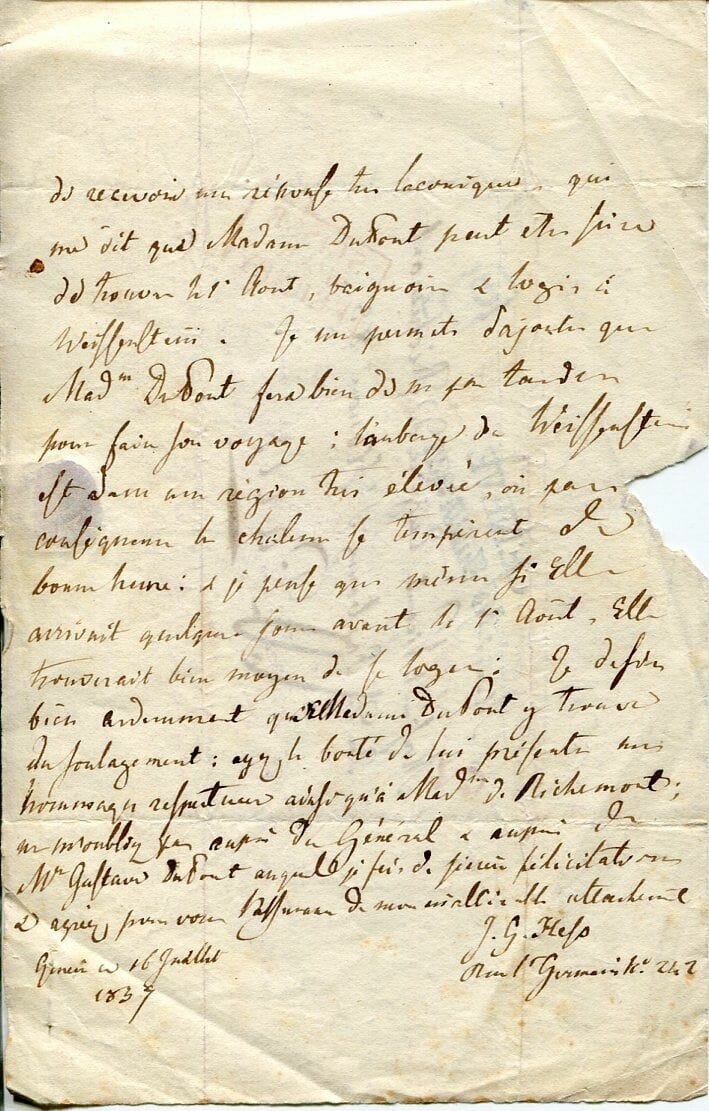 de recevoir une réponse très laconique, qui
me dit que Madame DuPont peut etre sure
de trouver le 1r Aout, baignoire & logis à
Weissenstein. Je me permets d'ajouter que
Madm DuPont fera bien de ne pas tarder
pour faire son voyage; l'auberge du Weissenstein
est dans une région très élevée, où par
conséquent les chaleurs se tempèrent de
bonne heure: & je pense que même si Elle
arrivait quelques jours avant le 1r Août, Elle
trouverait bien moyen de se loger. Je désire
bien ardemment que Madame DuPont y trouve
du soulagement; ayez la bonté de lui présenter mes
hommages respectueux ainsi qu'à Madme de Richemont;
ne m'oubliez pas auprès du Général & auprès de
Mr Gustave DuPont auquel je fais de sincères félicitations
& agréez pour vous l'assurance de mon inaltérable attachement
J. G. Hess
Genève ce 16 Juillet
Rue St Germain No. 242
1837